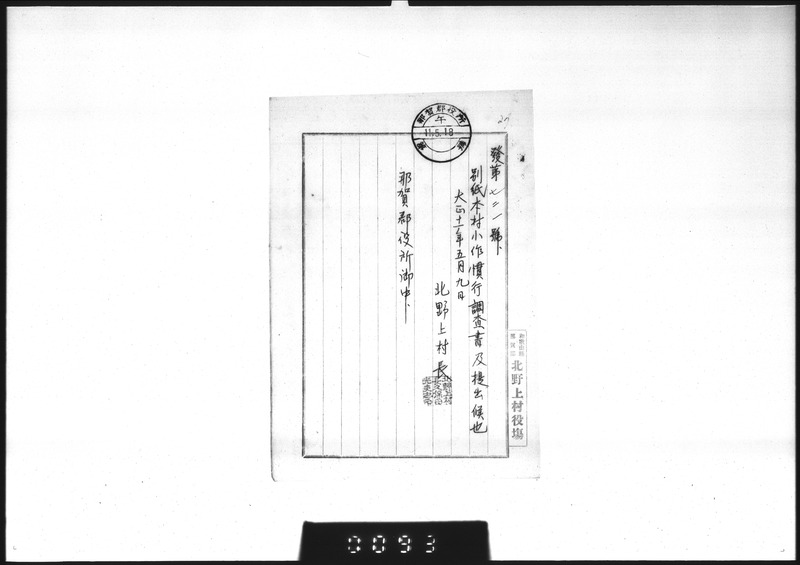 發第七二一號
別紙本村小作慣行調査書及提出候也
大正十一年五月九日
北野上村長
那賀郡役所御中
那賀郡役所
午
11.5.18
北野上村役場
0093